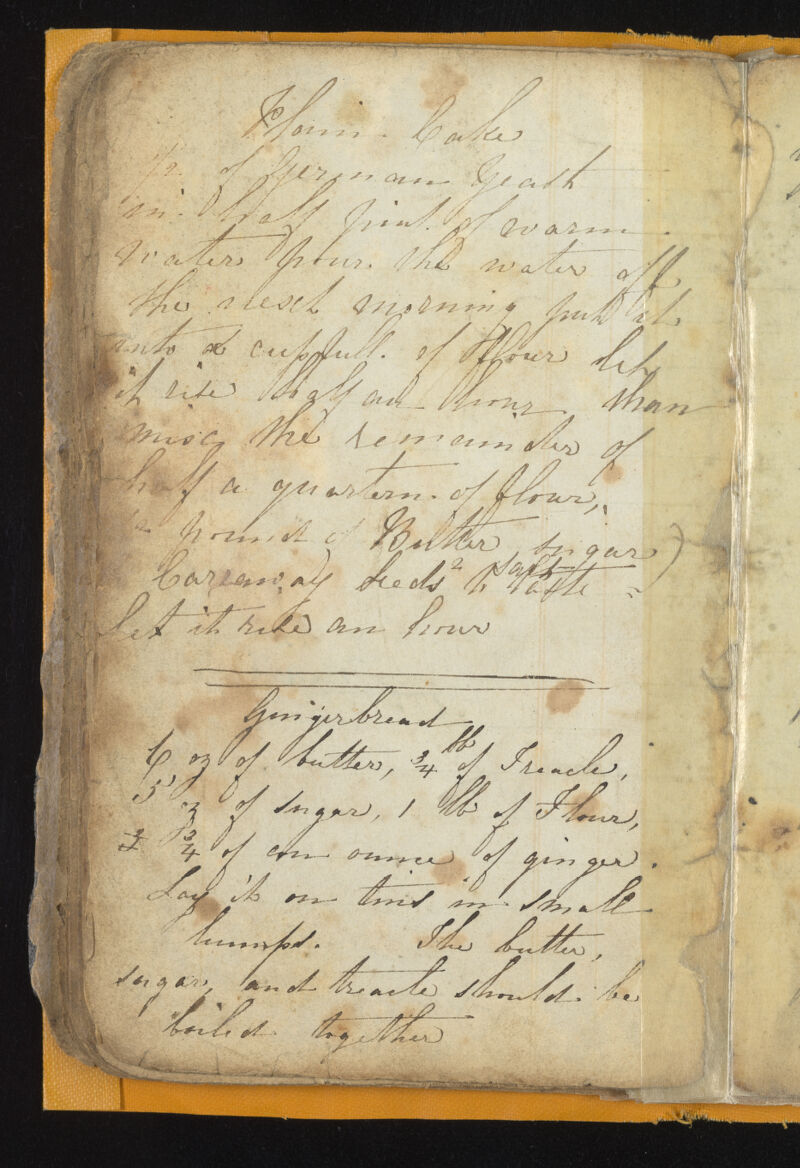 Plain Cake
of German Yeast
in half pint of warm
water pour the water off
the next morning put it
into a cupfull of flour let
it rise half an hour than
mix the remainder of
half a quartern of flour,
pound of Butter sugar
Careaway Seeds & salt to taste
Let it rise an hour
Gingerbread
6 oz of butter, 3/4 lb of Treacle,
5 oz of sugar, 1 lb of Flour,
3/4 of an ounce of ginger.
Lay it on tins in small
lumps. The butter,
sugar, and treacle should be
boiled together